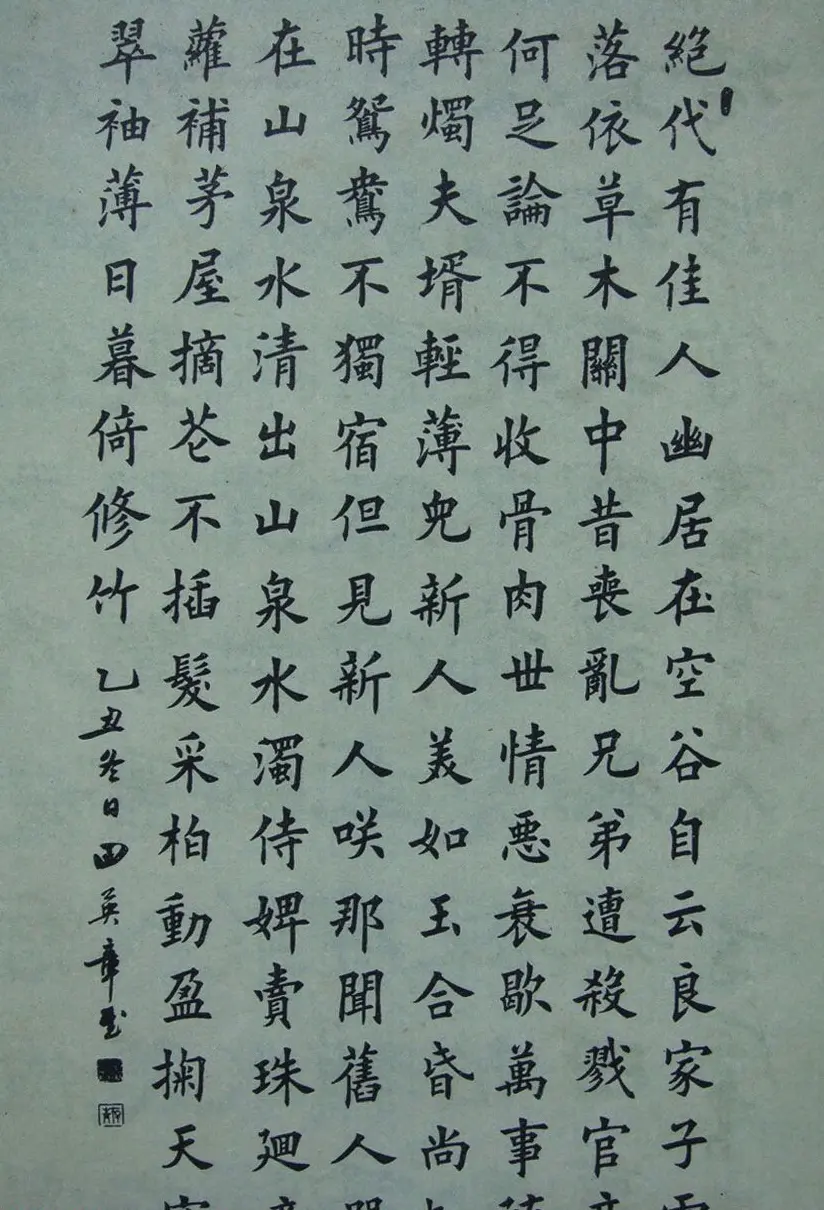 絕代有佳人幽居在空谷自云良家子
落依草木關中昔喪亂兄弟遭殺戮官
何足論不得收骨肉世情惡衰歇萬事
轉燭夫壻輕薄兒新人美如玉合昏尚
時鴛鴦不獨宿但見新人咲那聞舊人
在山泉水清出山泉水濁侍婢賣珠廻
蘿補茅屋摘芲不插髮采柏動盈掬天
翠袖薄日暮倚修竹
乙丑冬日田英章書